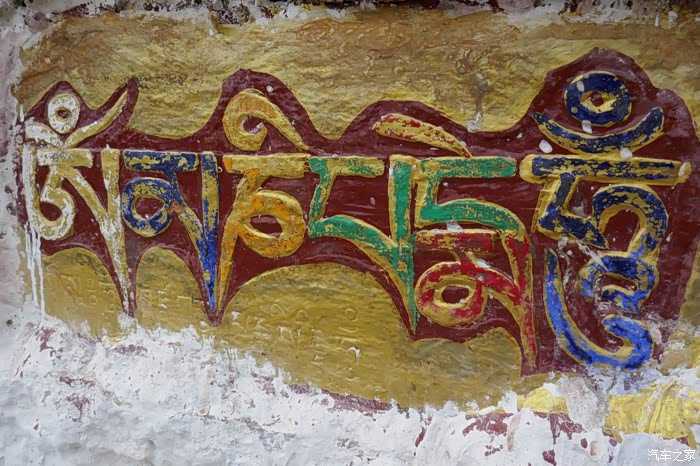 ༀམཎིཔདྨེཧཱུྃ
汽车之家